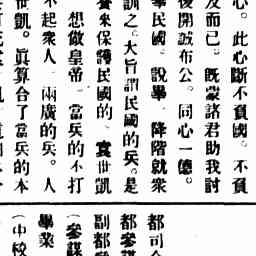 心。此心斷不負國。不負
及而已。既蒙諸君助我討
後開誠布公。同心一德。
民國。說畢。降階就衆
訓之。大旨謂民國的兵。是
養來保護民國的。袁世凱
想做皇帝。當兵的不打
不起衆人。兩廣的兵。人
世凱。眞算合了當兵的本
都司
都參謀
副都
(參謀
畢業
(中校